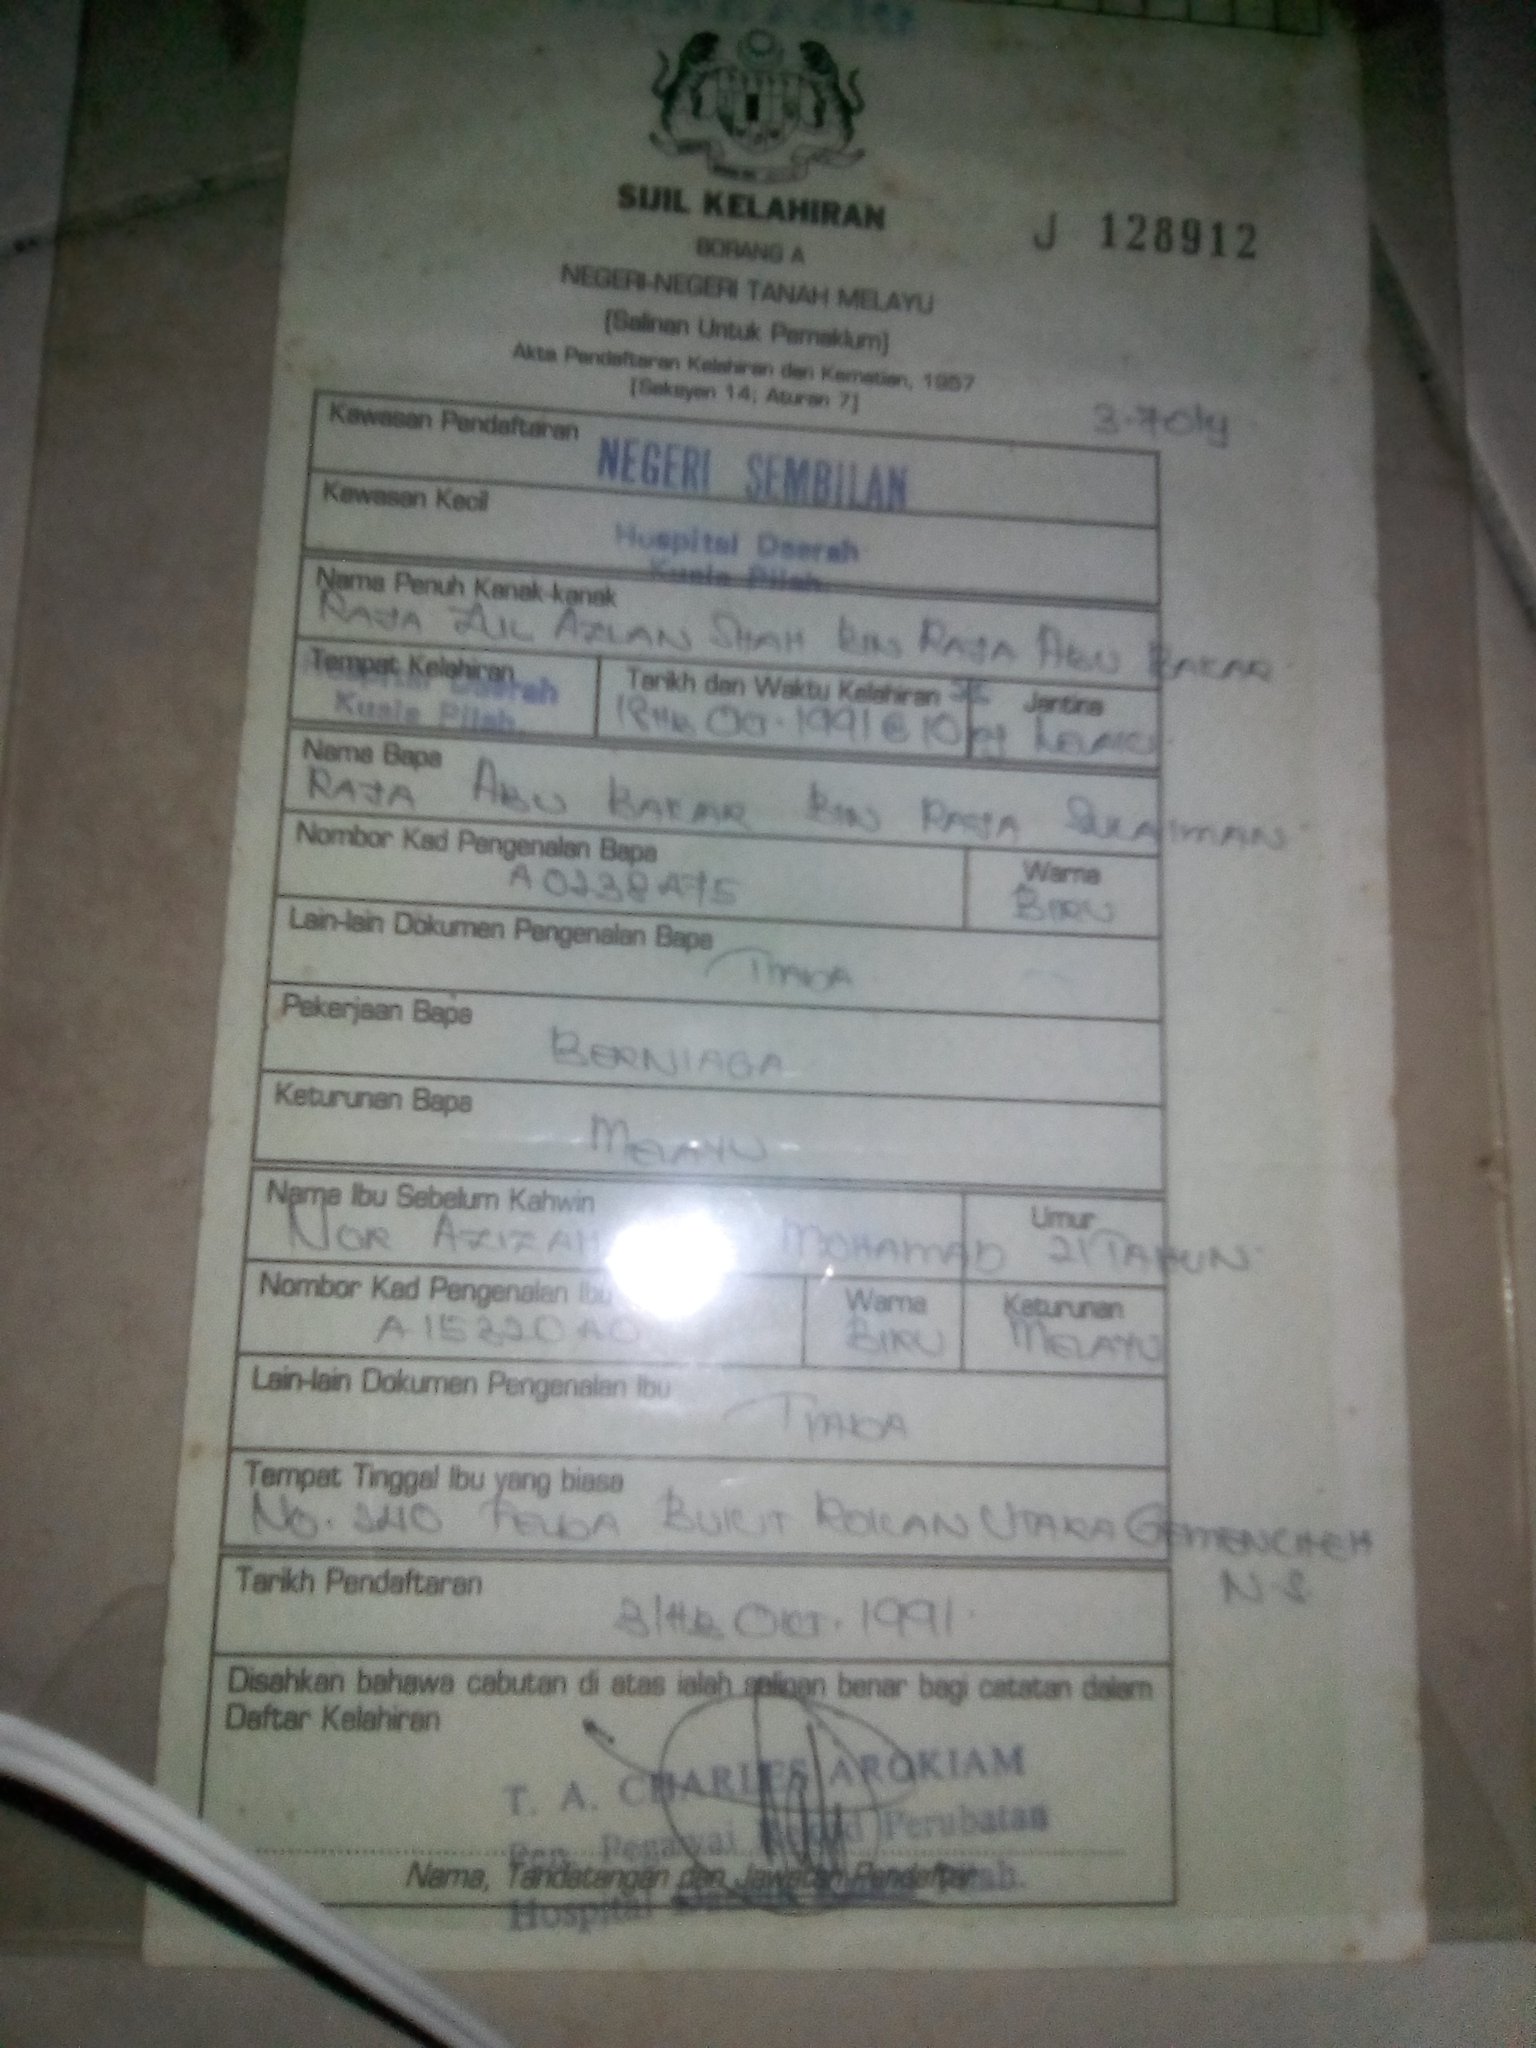 SIJIL KELAHIRAN
J 128912
BORANG A
NEGERI-NEGERI TANAH MELAYU
(Salinan Untuk Pemaklum)
Akta Pendaftaran Kelahiran dan Kematian, 1957
[Seksyen 14; Aturan 7]
Kawasan Pendaftaran
NEGERI SEMBILAN
Kawasan Kecil
Hospital Daerah
Kuala Pilah.
Nama Penuh Kanak-kanak
RAJA ZUL AZLAN SHAH BIN RAJA ABU BAKAR
Tempat Kelahiran
Hospital Daerah
Kuala Pilah.
Tarikh dan Waktu Kelahiran
18Hb OCT. 1991 @ 10
Jantina
LELAKI
Nama Bapa
RAJA ABU BAKAR BIN RAJA SULAIMAN
Nombor Kad Pengenalan Bapa
A0238475
Warna
BIRU
Lain-lain Dokumen Pengenalan Bapa
TIADA
Pekerjaan Bapa
BERNIAGA
Keturunan Bapa
MELAYU
Nama Ibu Sebelum Kahwin
NOR AZIZAH MOHAMAD
Umur
21 TAHUN
Nombor Kad Pengenalan Ibu
Warna
BIRU
Keturunan
MELAYU
Lain-lain Dokumen Pengenalan Ibu
TIADA
Tempat Tinggal Ibu yang biasa
No. 340 FELDA BUKIT ROKAN UTARA GEMENCHEH
N.S
Tarikh Pendaftaran
31Hb OKT. 1991.
Disahkan bahawa cabutan di atas ialah salinan benar bagi catatan dalam
Daftar Kelahiran
T. A. CHARLES AROKIAM
Pen. Pegawai Rekod Perubatan
Nama, Tandatangan dan Jawatan Pendaftar
Hospital